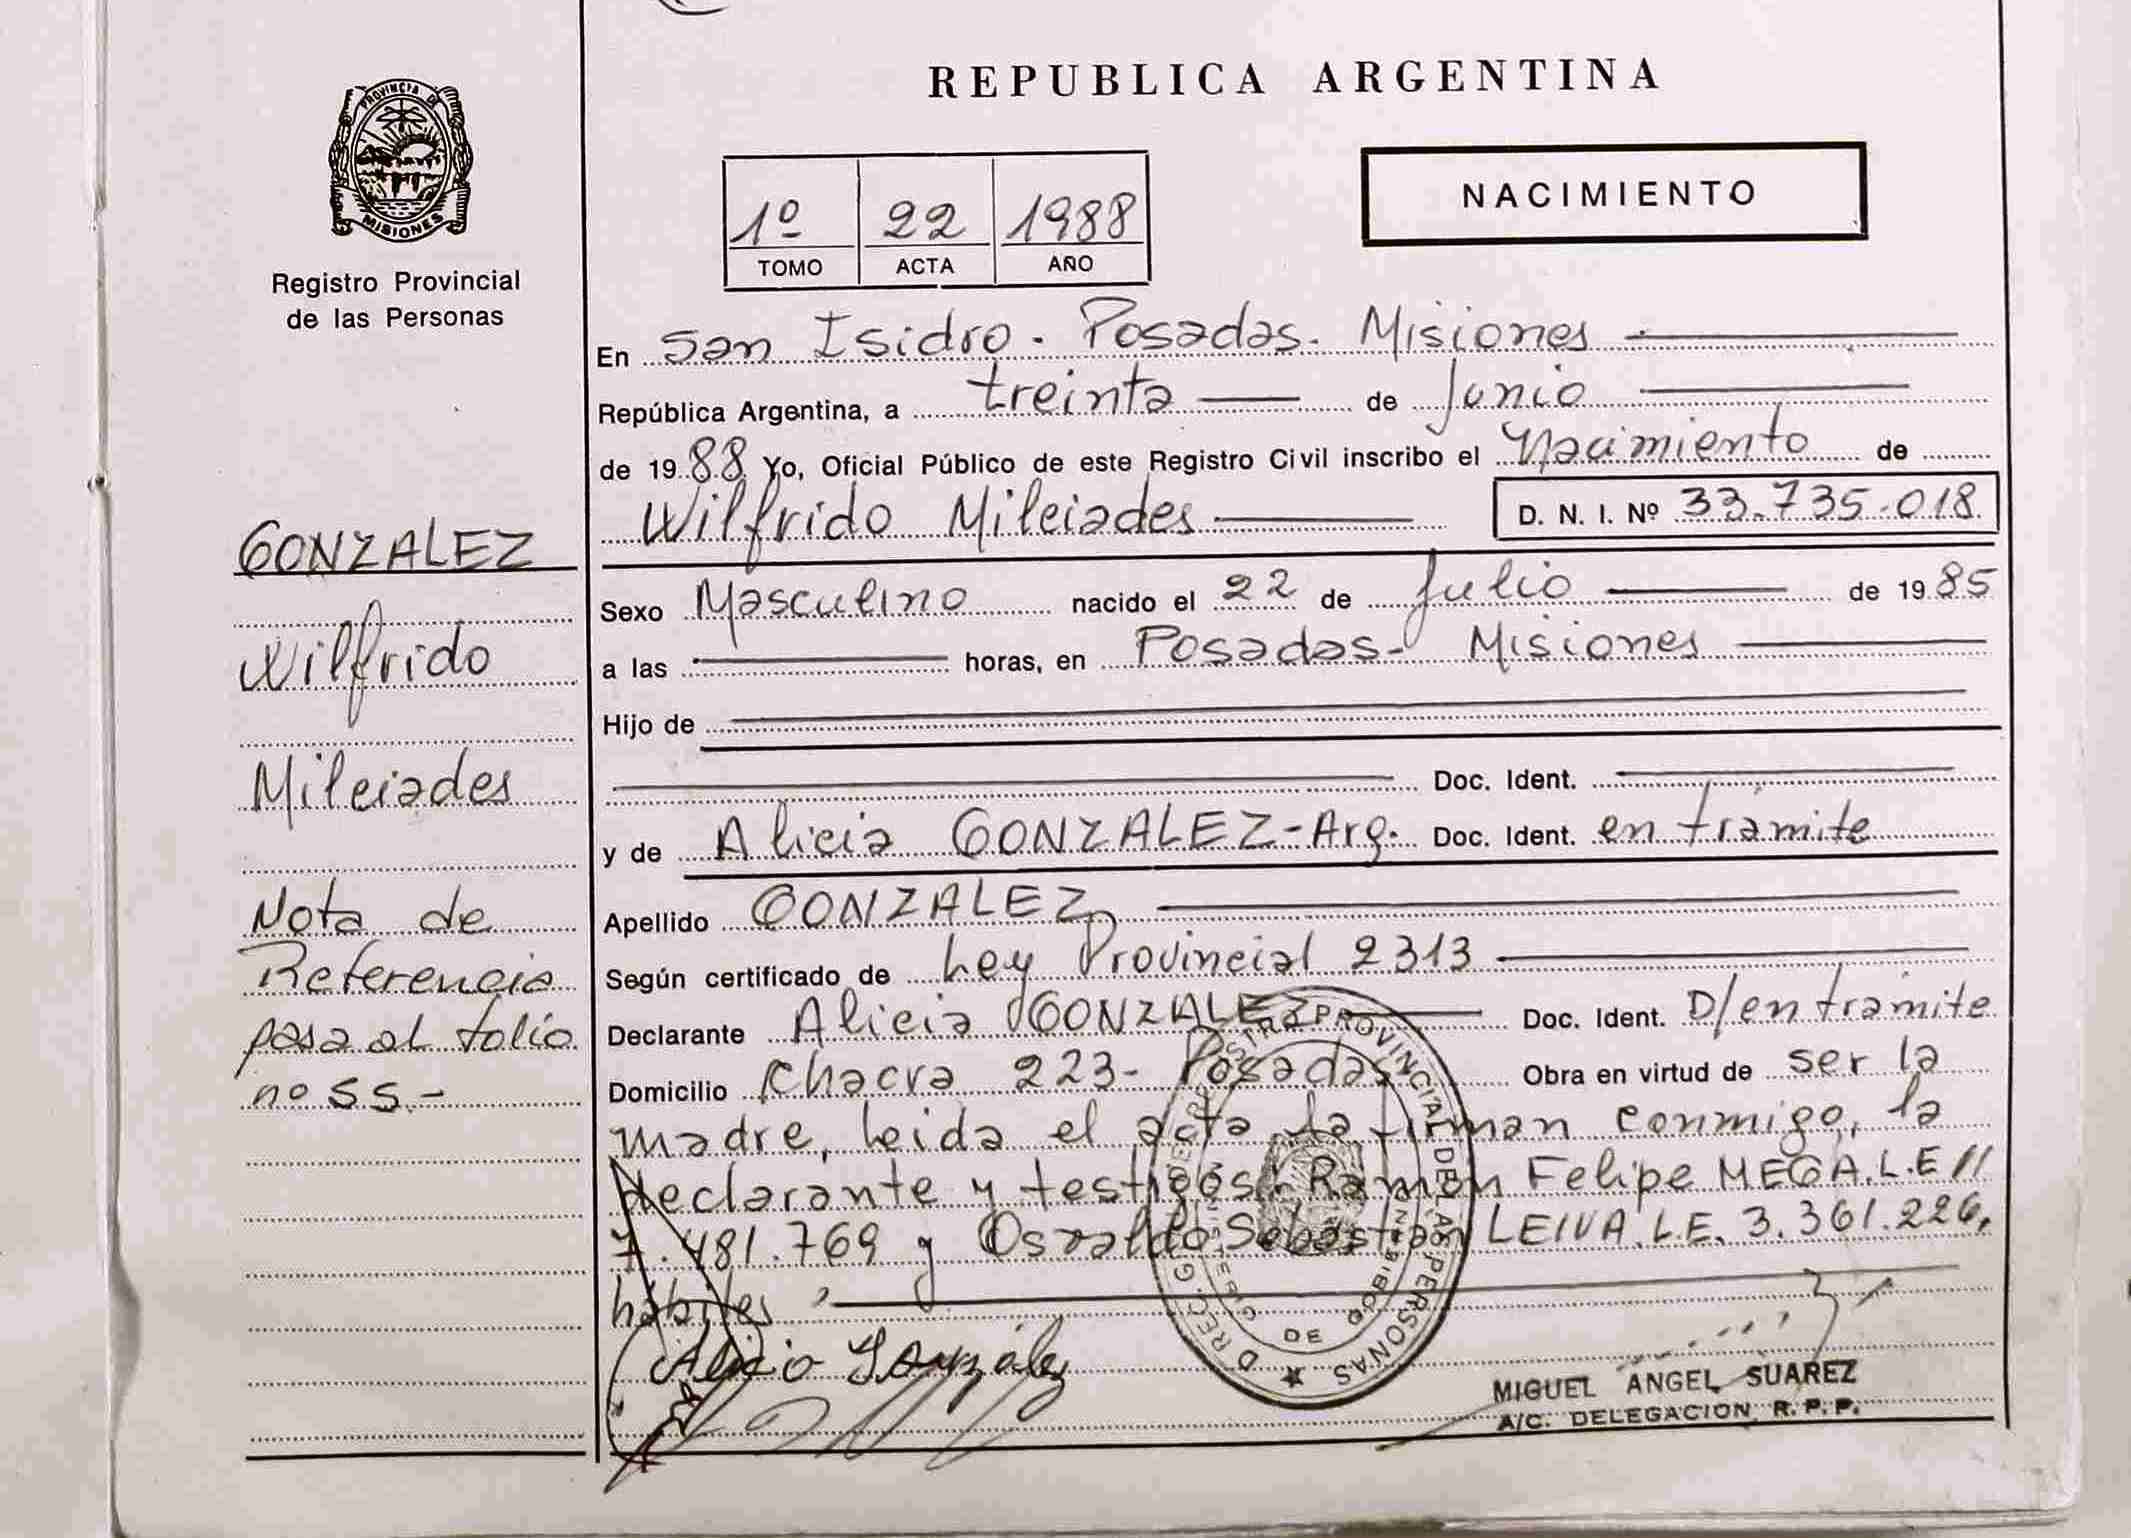 REPUBLICA ARGENTINA
PROVINCIA DE
MISIONES
Registro Provincial
de las Personas
1º 22 1988
TOMO ACTA AÑO
NACIMIENTO
En San Isidro - Posadas - Misiones
República Argentina, a treinta de Junio
de 1988 Yo, Oficial Público de este Registro Civil inscribo el Nacimiento de
Wilfrido Mileiades D. N. I. Nº 33.735.018
Sexo Masculino nacido el 22 de Julio de 1985
a las horas, en Posadas - Misiones
Hijo de
Doc. Ident.
y de Alicia GONZALEZ - Arg. Doc. Ident. en tramite
Apellido GONZALEZ
Según certificado de Ley Provincial 2313
Declarante Alicia GONZALEZ Doc. Ident. D/en tramite
Domicilio Chacra 223 - Posadas Obra en virtud de ser la
madre, leida el acta la firman conmigo, la
declarante y testigos: Ramon Felipe MEGA. L.E //
7.481.769 y Osvaldo Sebastian LEIVA. L.E. 3.361.226,
habiles
Alicia Gonzalez
GONZALEZ
Wilfrido
Mileiades
Nota de
Referencia
pasa al folio
nº 55.-
REGISTRO PROVINCIAL DE LAS PERSONAS
MIGUEL ANGEL SUAREZ
A/C. DELEGACION R. P. P.